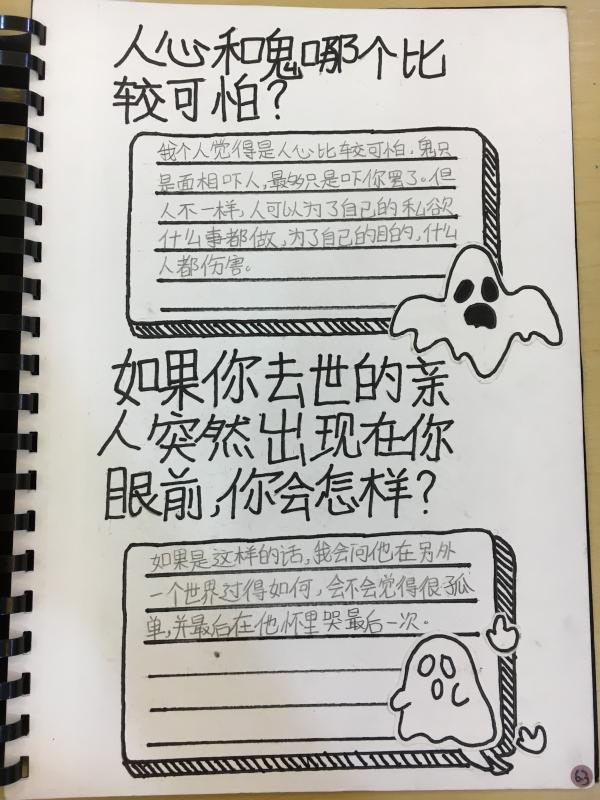 人心和鬼哪个比
较可怕？
我个人觉得是人心比较可怕，鬼只
是面相吓人，最多只是吓你罢了。但
人不一样，人可以为了自己的私欲
什么事都做，为了自己的目的，什么
人都伤害。
如果你去世的亲
人突然出现在你
眼前，你会怎样？
如果是这样的话，我会问他在另外
一个世界过得如何，会不会觉得很孤
单，并最后在他怀里哭最后一次。
63